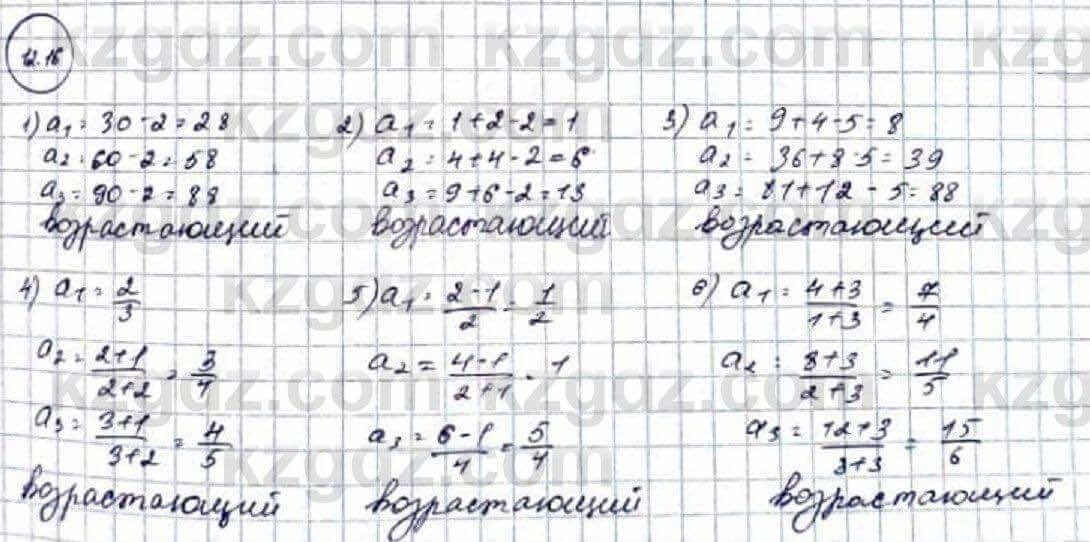 12.16
1) a₁ = 30 - 2 = 28
a₂ = 60 - 2 = 58
a₃ = 90 - 2 = 88
возрастающий
2) a₁ = 1 + 2 - 2 = 1
a₂ = 4 + 4 - 2 = 6
a₃ = 9 + 6 - 2 = 13
возрастающий
3) a₁ = 9 + 4 - 5 = 8
a₂ = 36 + 8 - 5 = 39
a₃ = 81 + 12 - 5 = 88
возрастающий
4) a₁ = 2/3
a₂ = (2+1)/(2+2) = 3/4
a₃ = (3+1)/(3+2) = 4/5
возрастающий
5) a₁ = (2-1)/2 = 1/2
a₂ = (4-1)/(2+1) = 1
a₃ = (6-1)/4 = 5/4
возрастающий
6) a₁ = (4+3)/(1+3) = 7/4
a₂ = (8+3)/(2+3) = 11/5
a₃ = (12+3)/(3+3) = 15/6
возрастающий
kzgdz.com